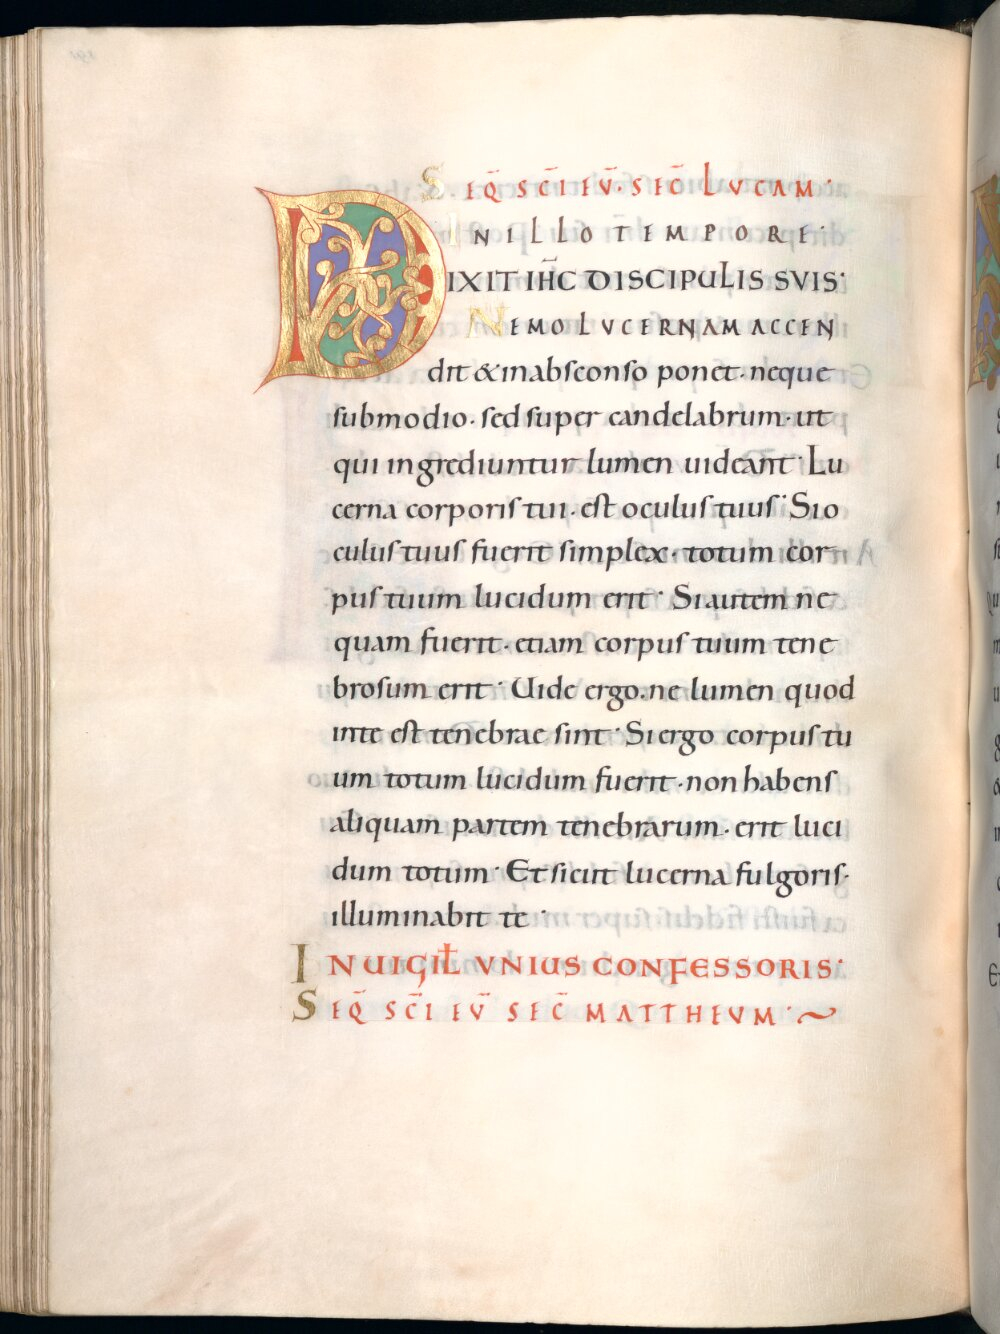 SEQ̄ SC̄I EV̄· SEC̄ LVCAM·
IN ILLO TEMPORE·
DIXIT IH̄C DISCIPULIS SVIS·
NEMO LVCERNAM ACCEN
dit & in absconso ponet· neque
sub modio· sed super candelabrum· ut
qui ingrediuntur lumen uideant· Lu
cerna corporis tui· est oculus tuus· Si o
culus tuus fuerit simplex· totum cor
pus tuum lucidum erit· Si autem ne
quam fuerit· etiam corpus tuum tene
brosum erit· Uide ergo· ne lumen quod
in te est tenebrae sint· Si ergo corpus tu
um totum lucidum fuerit· non habens
aliquam partem tenebrarum· erit luci
dum totum· Et sicut lucerna fulgoris·
illuminabit te·
IN UIGIŁ VNIUS CONFESSORIS·
SEQ̄ SC̄I EV̄ SEC̄ MATTHEVM·